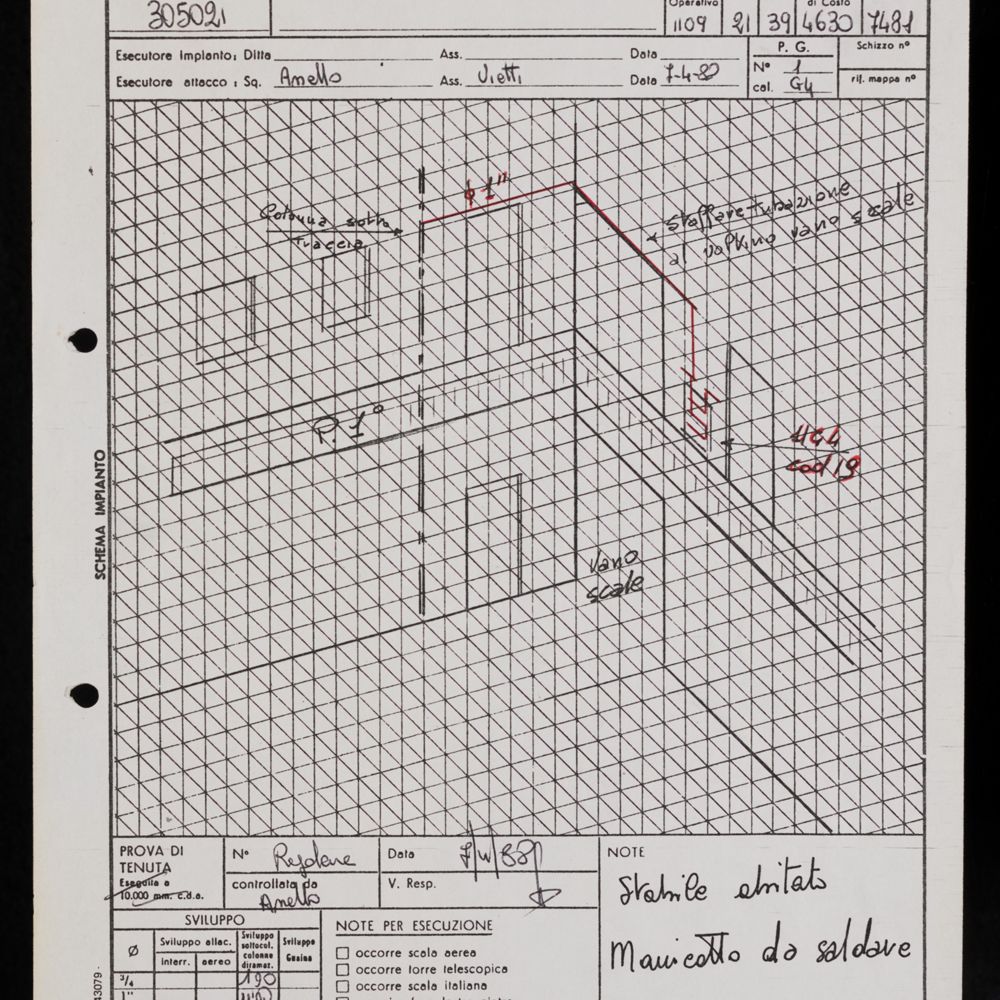 305021
Operativo
di Costo
1109 21 39 4630 7481
Esecutore impianto: Ditta Ass. Data
Esecutore attacco : Sq. Anello Ass. Vietti Data 7-4-82
P. G.
N° 1
cal. G4
Schizzo n°
rif. mappa n°
ϕ 1"
Colonna sotto
traccia
Staffare tubazione
al vano scale
P. 1°
4G4
cod 19
vano
scale
SCHEMA IMPIANTO
PROVA DI
TENUTA
Eseguita a
10.000 mm. c.d.a.
N° Regolare
controllata da
Anello
Data
V. Resp.
NOTE
Stabile abitato
Manicotto da saldare
SVILUPPO
Ø
Sviluppo allac.
interr. aereo
Sviluppo
sottocol.
colonne
diramaz.
Sviluppo
Guaina
3/4 190
1"
NOTE PER ESECUZIONE
occorre scala aerea
occorre torre telescopica
occorre scala italiana
43079 -